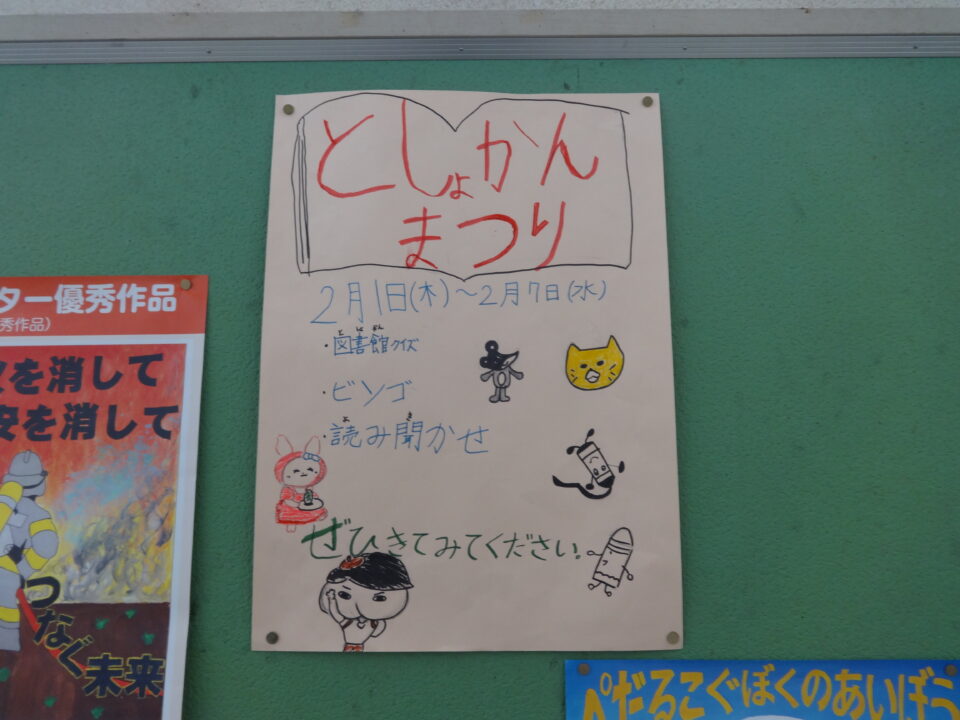 としょかん
まつり
2月1日(木)～2月7日(水)
と しょ かん
・図書館クイズ
・ビンゴ
よ き
・読み聞かせ
ぜひきてみてください.
ター優秀作品
秀作品)
を消して
安を消して
つなぐ未来
ペだるこぐぼくのあいぼう